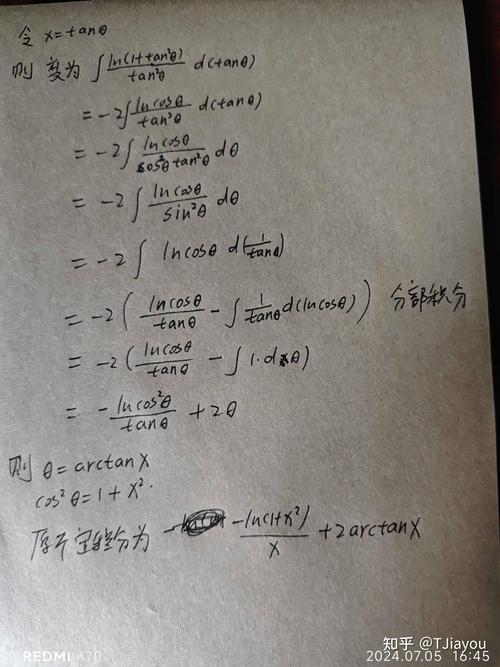 令 x=tanθ
则 变为 ∫ ln(1+tan²θ)/tan²θ d(tanθ)
= -2∫ lncosθ/tan²θ d(tanθ)
= -2∫ lncosθ/cos²θtan²θ dθ
= -2∫ lncosθ/sin²θ dθ
= -2∫ lncosθ d(1/tanθ)
= -2( lncosθ/tanθ - ∫ 1/tanθ d(lncosθ) ) 分部积分
= -2( lncosθ/tanθ - ∫ 1·dθ )
= - lncos²θ/tanθ + 2θ
则 θ=arctanx
cos²θ=1+x².
原不定积分为 -ln(1+x²)/x +2arctanx
REDMI K70
知乎 @TJiayou
2024.07.05 16:45